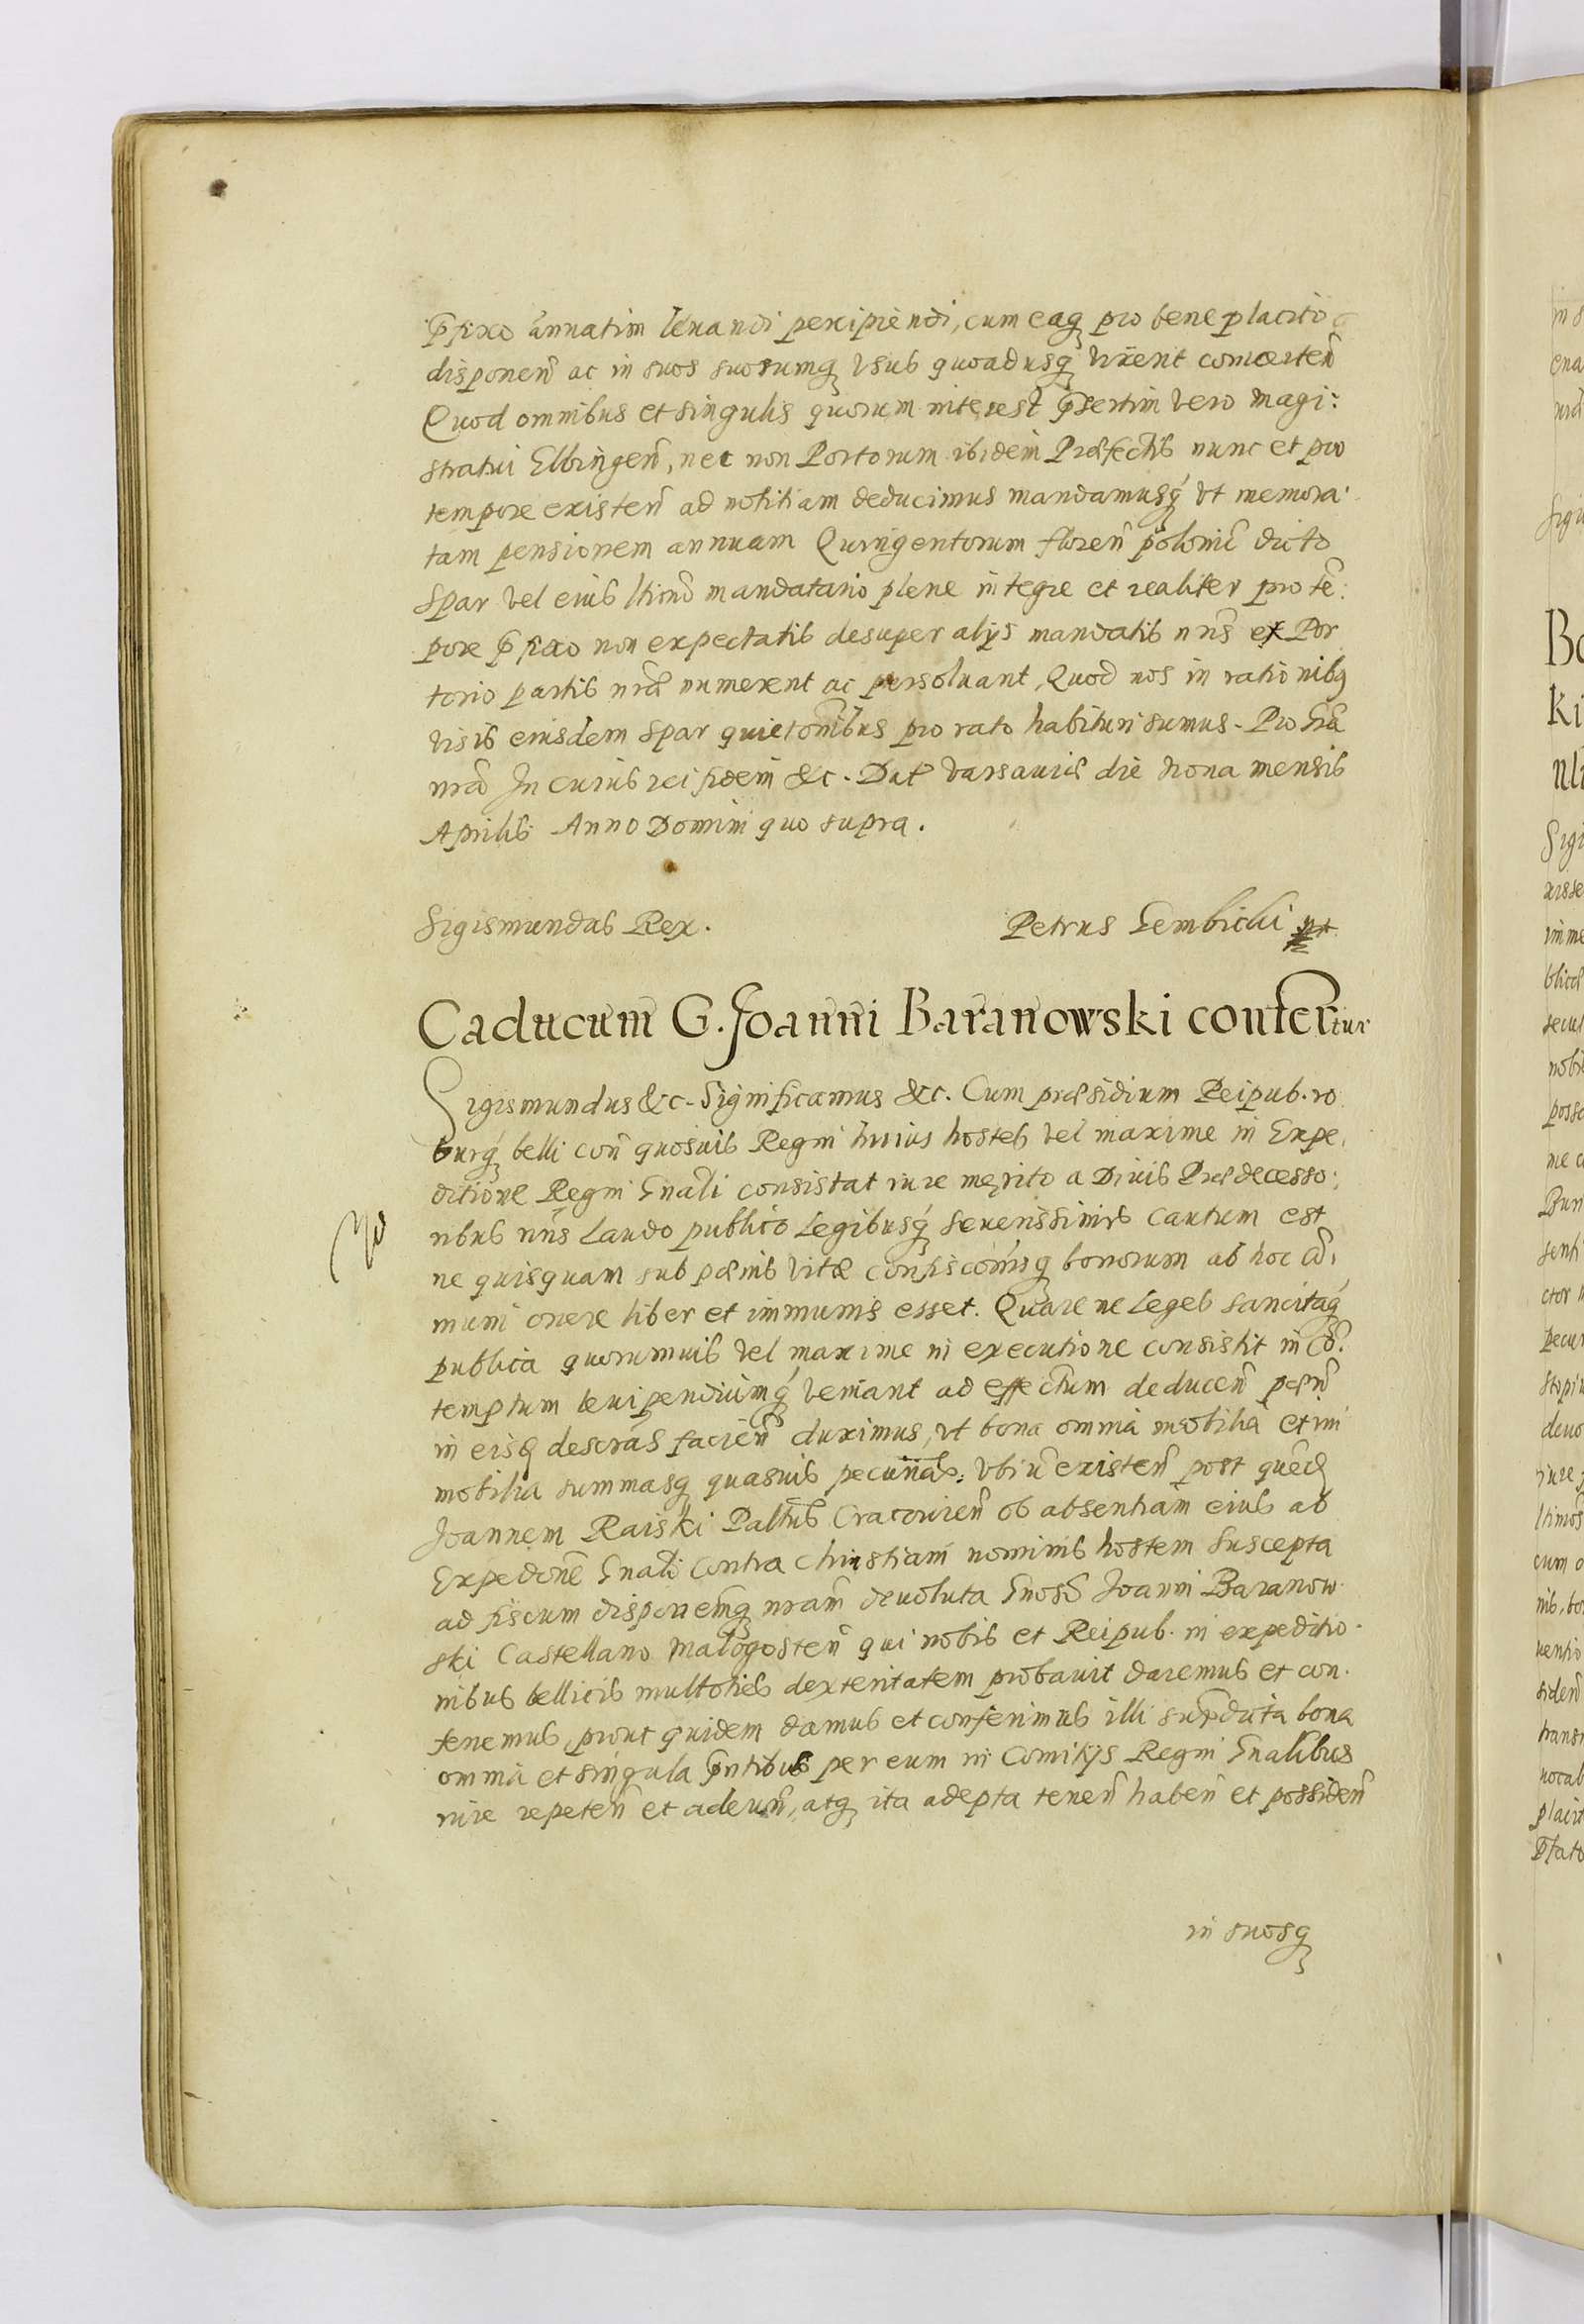 p̃fixo annatim leuandi percipiendi, cum eaq́ pro beneplacito
disponen̄ ac in suos suorumq́ vsus quoadusq́ vixerit conuerten̄
Quod omnibus et singulis quorum interest p̃sertim vero magi:
stratui Elbingen̄, nec non Portorum ibidem Præfectis nunc et pro
tempore existen̄ ad notitiam deducimus mandamusq́ vt memora·
tam pensionem annuam Quingentorum floren̄ polonic̄ dicto
Spar vel eius ltimo mandatario plene integre et realiter pro tē:
pore p̃fixo non expectatis desuper alijs mandatis nr̄is ex Por
torio partis nr̄æ numerent ac persoluant, Quod nos in rationibꝫ
visis eiusdem Spar quieton̄ibus pro rato habituri sumus. Pro gr̄a
nr̄a In cuius rei fidem &c. Dat̄ Varsauiæ die nona mensis
Aprilis Anno Domini quo supra.
Sigismundus Rex.
Petrus Gembicki
Caducum G. Joanni Baranowski confertur
Sigismundus &c. Significamus &c. Cum præsidium Reipub. ro
burq́ belli con̄ quosuis Regni huius hostes vel maxime in Expe,
ditione Regni Gn̄ali consistat iure merito a Diuis Prædecesso:
ribus nr̄is Laudo publico Legibusq́ seuerissimis cautum est
ne quisquam sub pænis vitæ confiscon̄isq́ bonorum ab hoc cō,
muni onere liber et immunis esset. Quare ne Leges sancitaq́
publica quorumuis vel maxime in executione consistit in cō:
temptum leuipendiumq́ veniant ad effectum deducen̄ pæn̄
in eisq́ descr̄as facien̄ duximus, vt bona omnia mobilia et im
mobilia summasq́ quasuis pecun̄as: vbiū existen̄ post quen̄dꝫ
Joannem Raiski Pal̄tns Cracouien̄ ob absentiam eius ab
Expedon̄e Gn̄ali contra Christiani nominis hostem suscepta
ad fiscum dispon̄emq́ nr̄am deuoluta Gn̄oso Joanni Baranow
ski Castellano Malogosten̄ qui nobis et Reipub. in expeditio·
nibus bellicis multoties dexteritatem probauit daremus et con·
feremus, prout quidem damus et conferimus illi supradicta bona
omnia et singula p̃ntibus per eum in Comitijs Regni Gn̄alibus
iure repeten̄ et adeun̄, atq́ ita adepta tenen̄ haben̄ et possiden̄
in suosq́